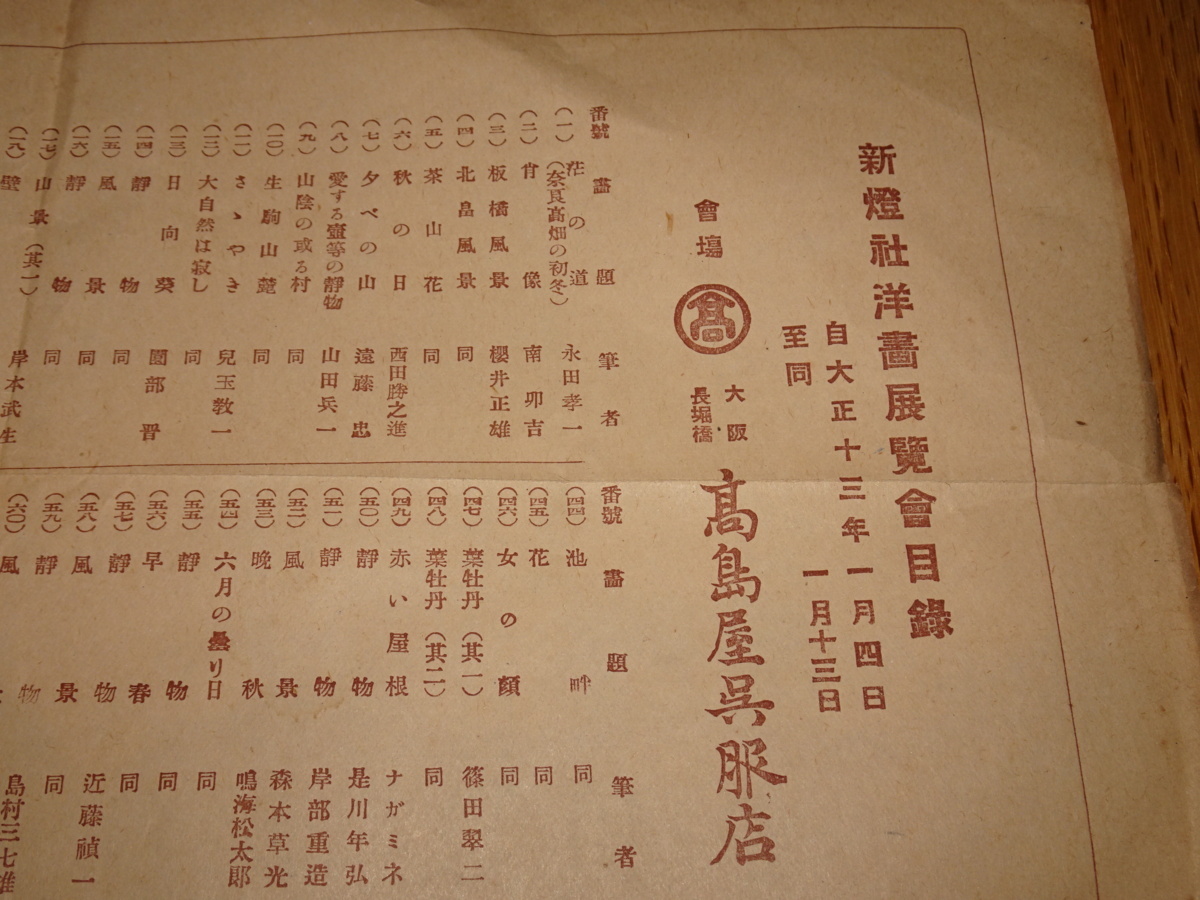 新燈社洋畵展覽會目錄
自大正十三年一月四日
至同一月十三日
會塲
髙
大阪
長堀橋
髙島屋呉服店
番號 畵題 筆者
(一) 茫の道 永田孝一
(奈良高畑の初冬)
(二) 肖像 南卯吉
(三) 板橋風景 櫻井正雄
(四) 北畠風景 同
(五) 茶山花 同
(六) 秋の日 西田勝之進
(七) 夕べの山 遠藤忠
(八) 愛する壷等の靜物 山田兵一
(九) 山陰の或る村 同
(一〇) 生駒山麓 同
(一一) さゝやき 兒玉敎一
(一二) 大自然は寂し 同
(一三) 日向葵 園部晋
(一四) 靜物 同
(一五) 風景 同
(一六) 靜物 同
(一七) 山景(其一) 岸本武生
(一八) 壁
番號 畵題 筆者
(四四) 池畔 同
(四五) 花 同
(四六) 女の顏 同
(四七) 葉牡丹(其一) 篠田翠二
(四八) 葉牡丹(其二) 同
(四九) 赤い屋根 ナガミネ
(五〇) 靜物 是川年弘
(五一) 靜物 岸部重造
(五二) 風景 森本草光
(五三) 晩秋 鳴海松太郎
(五四) 六月の曇り日 同
(五五) 靜物 同
(五六) 早春 同
(五七) 靜物 近藤禎一
(五八) 風景 同
(五九) 靜物 島村三七雄
(六〇) 風